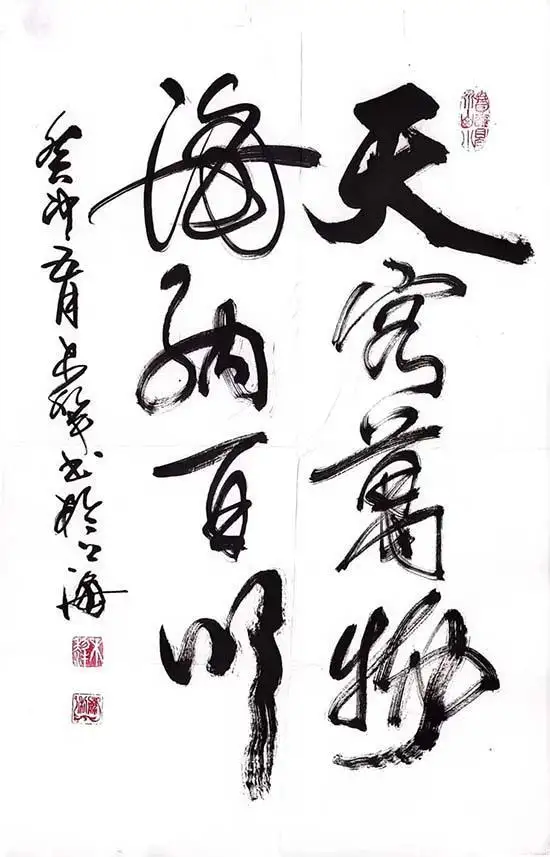 天容萬物
海納百川
癸卯五月大聲书於上海